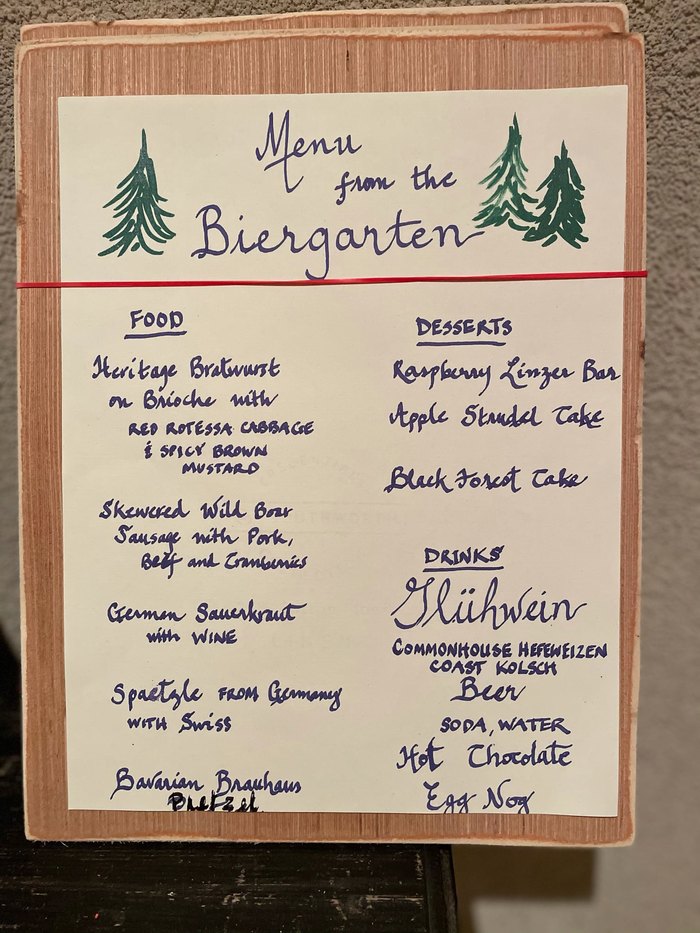 Menu
from the
Biergarten
FOOD
Heritage Bratwurst
on Brioche with
RED ROTESSA CABBAGE
& SPICY BROWN
MUSTARD
Skewered Wild Boar
Sausage with Pork,
Beef and Cranberries
German Sauerkraut
with WINE
Spaetzle FROM Germany
WITH Swiss
Bavarian Brauhaus
Pretzel
DESSERTS
Raspberry Linzer Bar
Apple Strudel Cake
Black Forest Cake
DRINKS
Glühwein
COMMONHOUSE HEFEWEIZEN
COAST KOLSCH
Beer
SODA, WATER
Hot Chocolate
Egg Nog